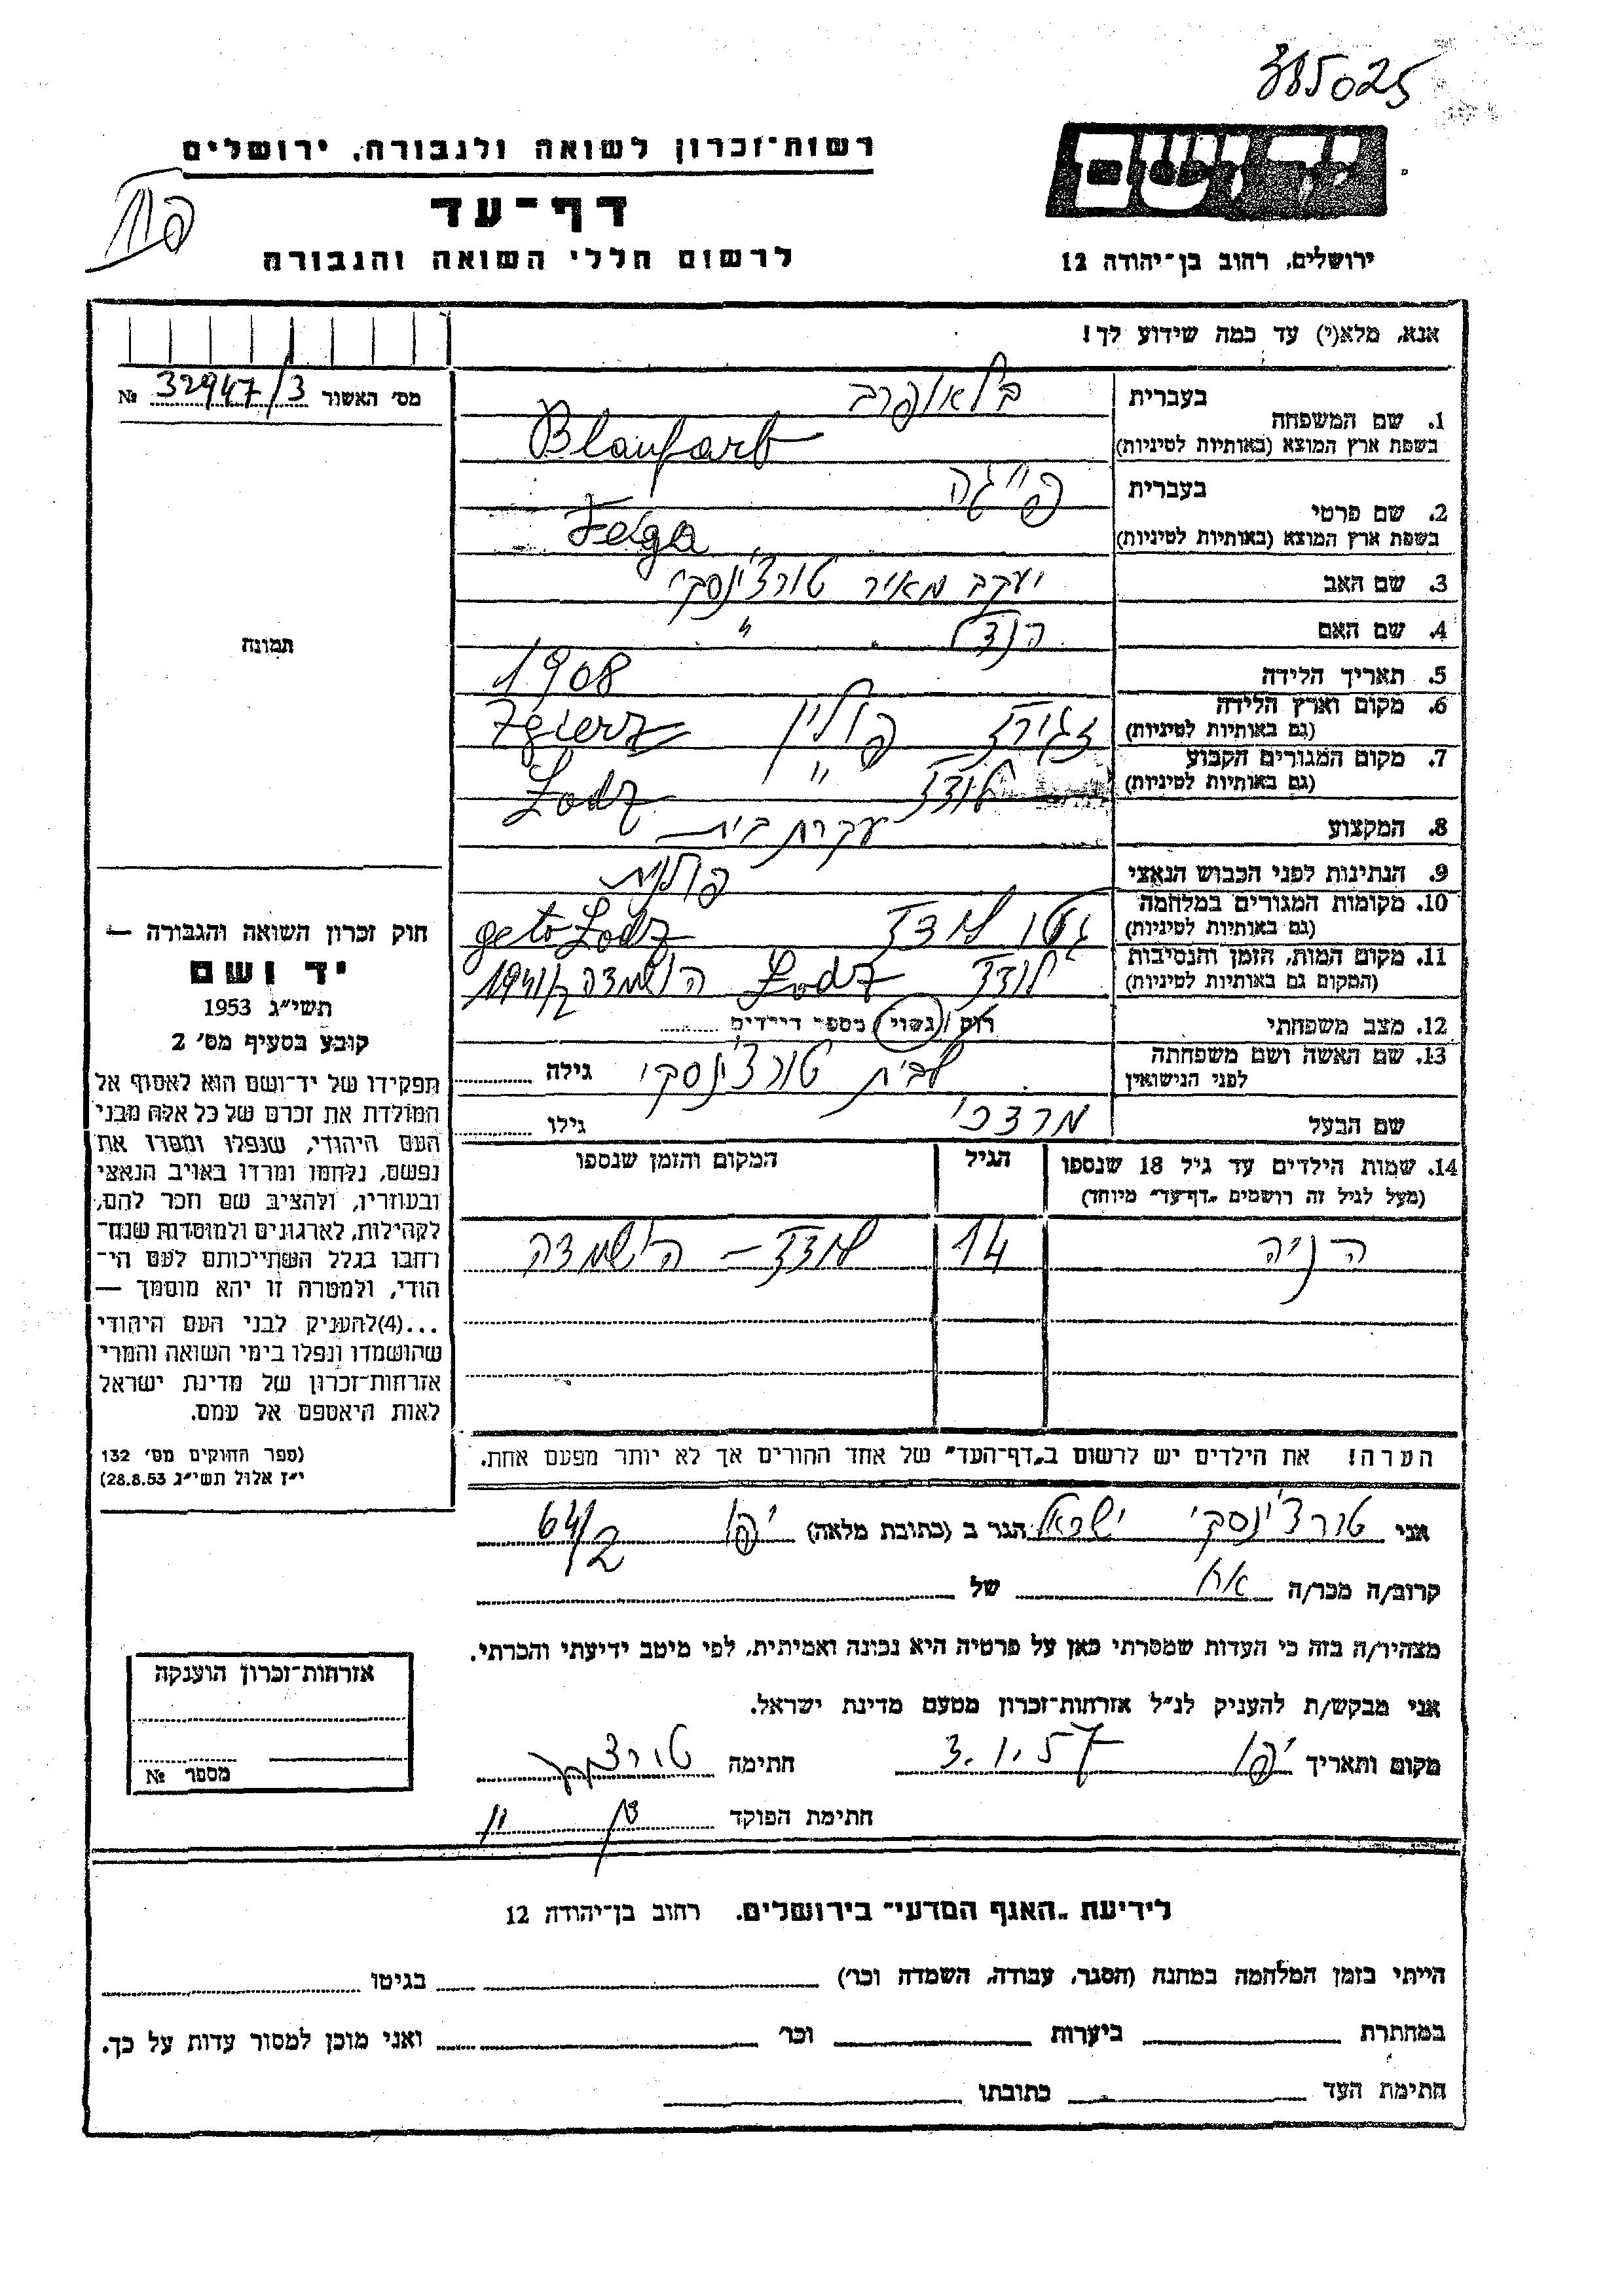 385025
יד ושם
רשות־זכרון לשואה ולגבורה, ירושלים
דף־עד
לרשום חללי השואה והגבורה
ירושלים, רחוב בן־יהודה 12
אנא, מלא(י) עד כמה שידוע לך!
מס' האשור 32947/3 №
תמונה
1. שם המשפחה
בעברית בלאופרב
בשפת ארץ המוצא (באותיות לטיניות) Blaufarb
2. שם פרטי
בעברית פייגה
בשפת ארץ המוצא (באותיות לטיניות) Fejga
3. שם האב יעקב מאיר טורצ'ינסקי
4. שם האם הנדל "
5. תאריך הלידה 1908
6. מקום וארץ הלידה
(גם באותיות לטיניות) זגירז פולין Zgierz
7. מקום המגורים הקבוע
(גם באותיות לטיניות) לודז " Lodz
8. המקצוע עקרת בית
9. הנתינות לפני הכבוש הנאצי פולנית
10. מקומות המגורים במלחמה
(גם באותיות לטיניות) גטו לודז geto Lodz
11. מקום המות, הזמן והנסיבות
(המקום גם באותיות לטיניות) לודז Lodz השמדה 1941/2
12. מצב משפחתי רווק / נשוי מספר הילדים
13. שם האשה ושם משפחתה
לפני הנישואין לבית טורצ'ינסקי גילה
שם הבעל מרדכי גילו
14. שמות הילדים עד גיל 18 שנספו הגיל המקום והזמן שנספו
(מעל לגיל זה רושמים "דף־עד" מיוחד)
הניה 14 לודז – השמדה
הערה! את הילדים יש לרשום ב"דף־העד" של אחד ההורים אך לא יותר מפעם אחת.
חוק זכרון השואה והגבורה —
יד ושם
תשי"ג 1953
קובע בסעיף מס' 2
תפקידו של יד־ושם הוא לאסוף אל
המולדת את זכרם של כל אלה מבני
העם היהודי, שנפלו ומסרו את
נפשם, נלחמו ומרדו באויב הנאצי
ובעוזריו, ולהציב שם וזכר להם,
לקהילות, לארגונים ולמוסדות שנח־
רבו בגלל השתייכותם לעם הי־
הודי, ולמטרה זו יהא מוסמך —
...(4)להעניק לבני העם היהודי
שהושמדו ונפלו בימי השואה והמרי
אזרחות־זכרון של מדינת ישראל
לאות היאספם אל עמם.
(ספר החוקים מס' 132
י"ז אלול תשי"ג 28.8.53)
אני טורצ'ינסקי ישראל הגר ב (כתובת מלאה) יפו 64/2
קרוב/ה מכר/ה אח של
מצהיר/ה בזה כי העדות שמסרתי כאן על פרטיה היא נכונה ואמיתית, לפי מיטב ידיעתי והכרתי.
אני מבקש/ת להעניק לנ"ל אזרחות־זכרון מטעם מדינת ישראל.
מקום ותאריך יפו 3.1.57 חתימה
חתימת הפוקד
אזרחות־זכרון הוענקה
מספר №
לידיעת "האגף המדעי" בירושלים. רחוב בן־יהודה 12
הייתי בזמן המלחמה במחנה (הסגר, עבודה, השמדה וכו') בגיטו
במחתרת ביערות וכו' ואני מוכן למסור עדות על כך.
חתימת העד כתובתו